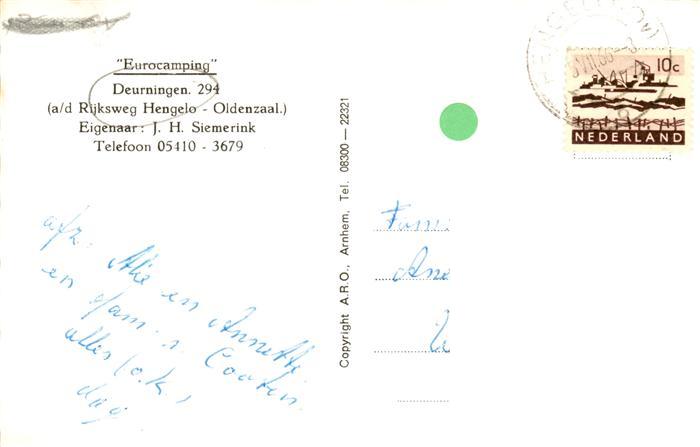 "Eurocamping"
Deurningen. 294
(a/d Rijksweg Hengelo - Oldenzaal.)
Eigenaar: J. H. Siemerink
Telefoon 05410 - 3679
Copyright A.R.O., Arnhem, Tel. 08300 — 22321
10c
NEDERLAND
HENGELO (OV)
afz. Mie en Annette
en fam.
alles o.k.,
dag
Fam.